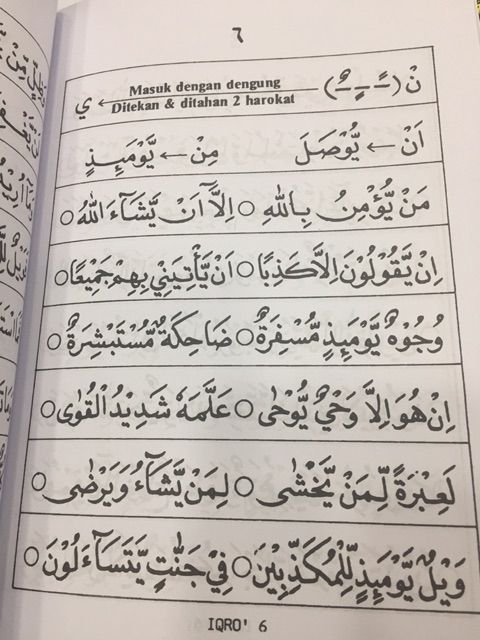 ٦
نْ (ـًـ ـٍـ ـٌـ) Masuk dengan dengung ي
Ditekan & ditahan 2 harokat
اَنْ ← يُّوْصَلَ مِنْ ← يَّوْمَئِذٍ
مَنْ يُّؤْمِنُ بِاللّٰهِ ○ اِلَّآ اَنْ يَّشَآءَ اللّٰهُ ○
اِنْ يَّقُوْلُوْنَ اِلَّا كَذِبًا ○ اَنْ يَّأْتِيَنِيْ بِهِمْ جَمِيْعًا ○
وُجُوْهٌ يَّوْمَئِذٍ مُّسْفِرَةٌ ○ ضَاحِكَةٌ مُّسْتَبْشِرَةٌ ○
اِنْ هُوَ اِلَّا وَحْيٌ يُّوْحٰى ○ عَلَّمَهٗ شَدِيْدُ الْقُوٰى ○
لَعِبْرَةً لِّمَنْ يَّخْشٰى ○ لِمَنْ يَّشَآءُ وَيَرْضٰى ○
وَيْلٌ يَّوْمَئِذٍ لِّلْمُكَذِّبِيْنَ ○ فِيْ جَنّٰتٍ يَّتَسَآءَلُوْنَ ○
IQRO' 6